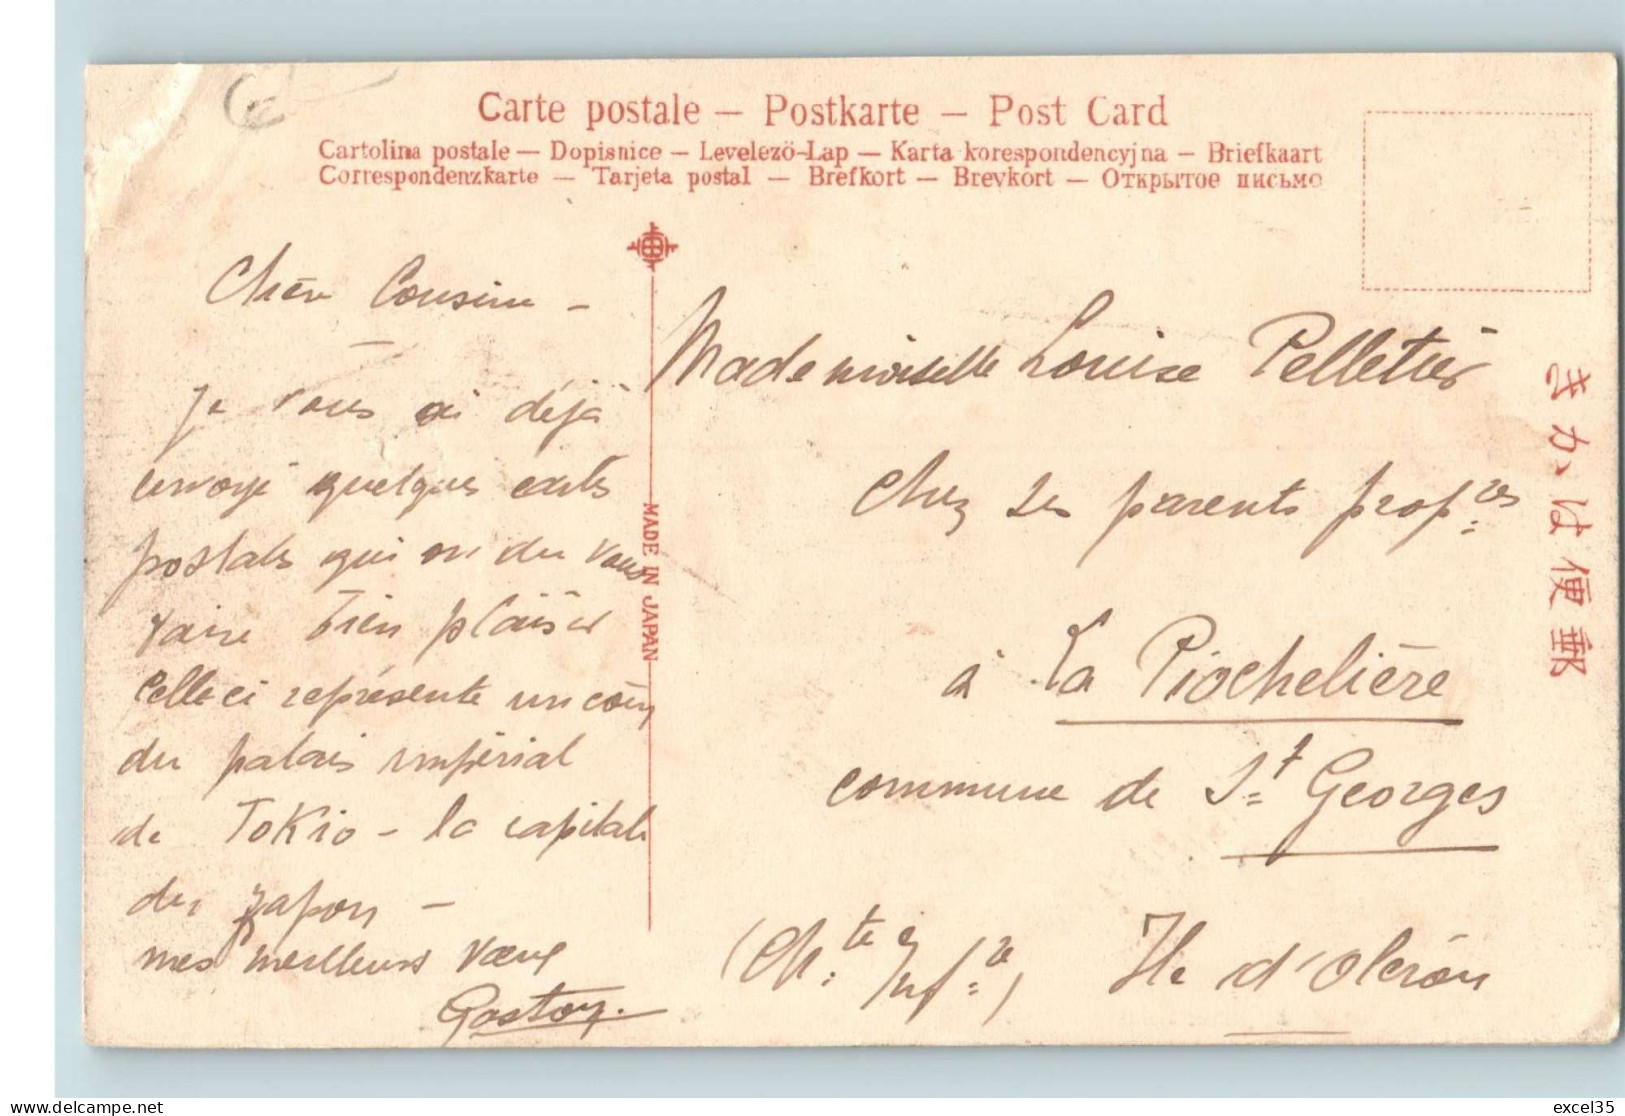 Carte postale — Postkarte — Post Card
Cartolina postale — Dopisnice — Levelezö-Lap — Karta korespondencyjna — Briefkaart
Correspondenzkarte — Tarjeta postal — Brefkort — Brevkort — Открытое письмо
Chère Cousine —
Je vous ai déjà
envoyé quelques cartes
postales qui on du vous
faire bien plaisir
Celle ci représente un coin
du palais impérial
de Tokio - la capitale
du Japon -
mes meilleurs vœux
Gaston.
MADE IN JAPAN
Mademoiselle Louise Pelletier
chez ses parents prop.res
à La Piochelière
commune de St Georges
(Ch.te Inf.re) Ile d'Oléron
きかは便郵
delcampe.net
excel35